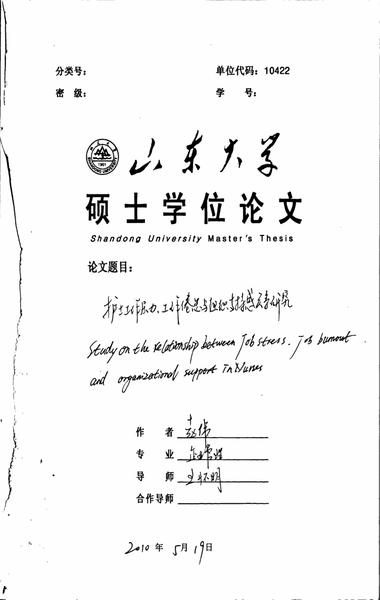 分类号：
单位代码：10422
密 级：
学 号：
1901
山东大学
硕士学位论文
Shandong University Master's Thesis
论文题目：
护士工作压力、工作倦怠与组织支持感关系研究
Study on the relationship between Job stress, Job burnout
and organizational support in Nurses
作 者
专 业 企业管理
导 师
合作导师
2010 年 5月19日